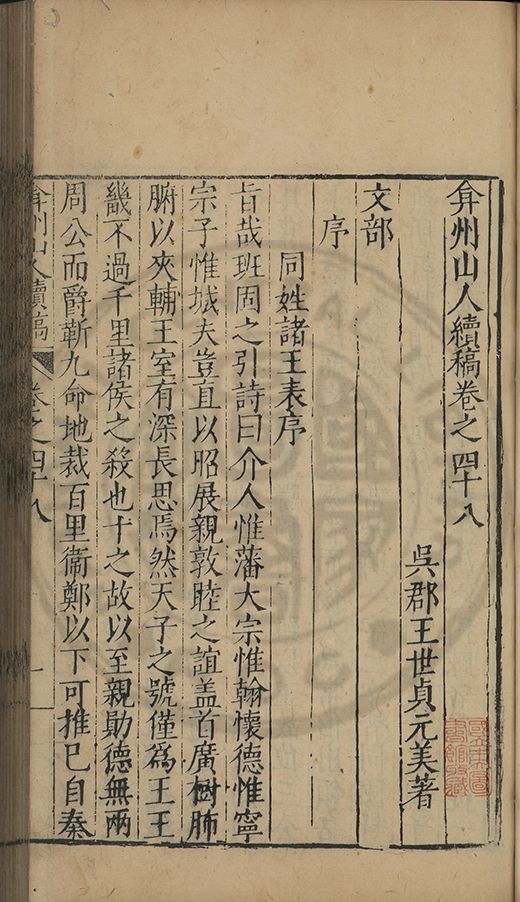 弇州山人續稿卷之四十八
吳郡王世貞元美著
文部
序
同姓諸王表序
旨哉班固之引詩曰介人惟藩大宗惟翰懷德惟寧
宗子惟城夫豈直以昭展親敦睦之誼盖首廣樹肺
腑以夾輔王室有深長思焉然天子之號僅為王王
畿不過千里諸侯之殺也十之故以至親勛德無兩
周公而爵靳九命地裁百里衞鄭以下可推已自秦
弇州山人續稿
卷之四十八
一